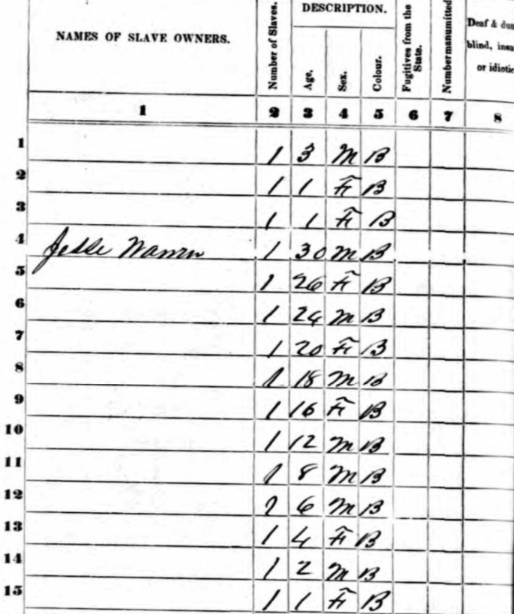 NAMES OF SLAVE OWNERS. Number of Slaves. DESCRIPTION. Fugitives from the State. Number manumitted Deaf & dum blind, insa or idiotic
Age. Sex. Colour.
1 2 3 4 5 6 7 8
1 1 3 M B
2 1 1 F B
3 1 1 F B
4 Jesse Warren 1 30 M B
5 1 26 F B
6 1 24 M B
7 1 20 F B
8 1 18 M B
9 1 16 F B
10 1 12 M B
11 1 8 M B
12 1 6 M B
13 1 4 F B
14 1 2 M B
15 1 1 F B